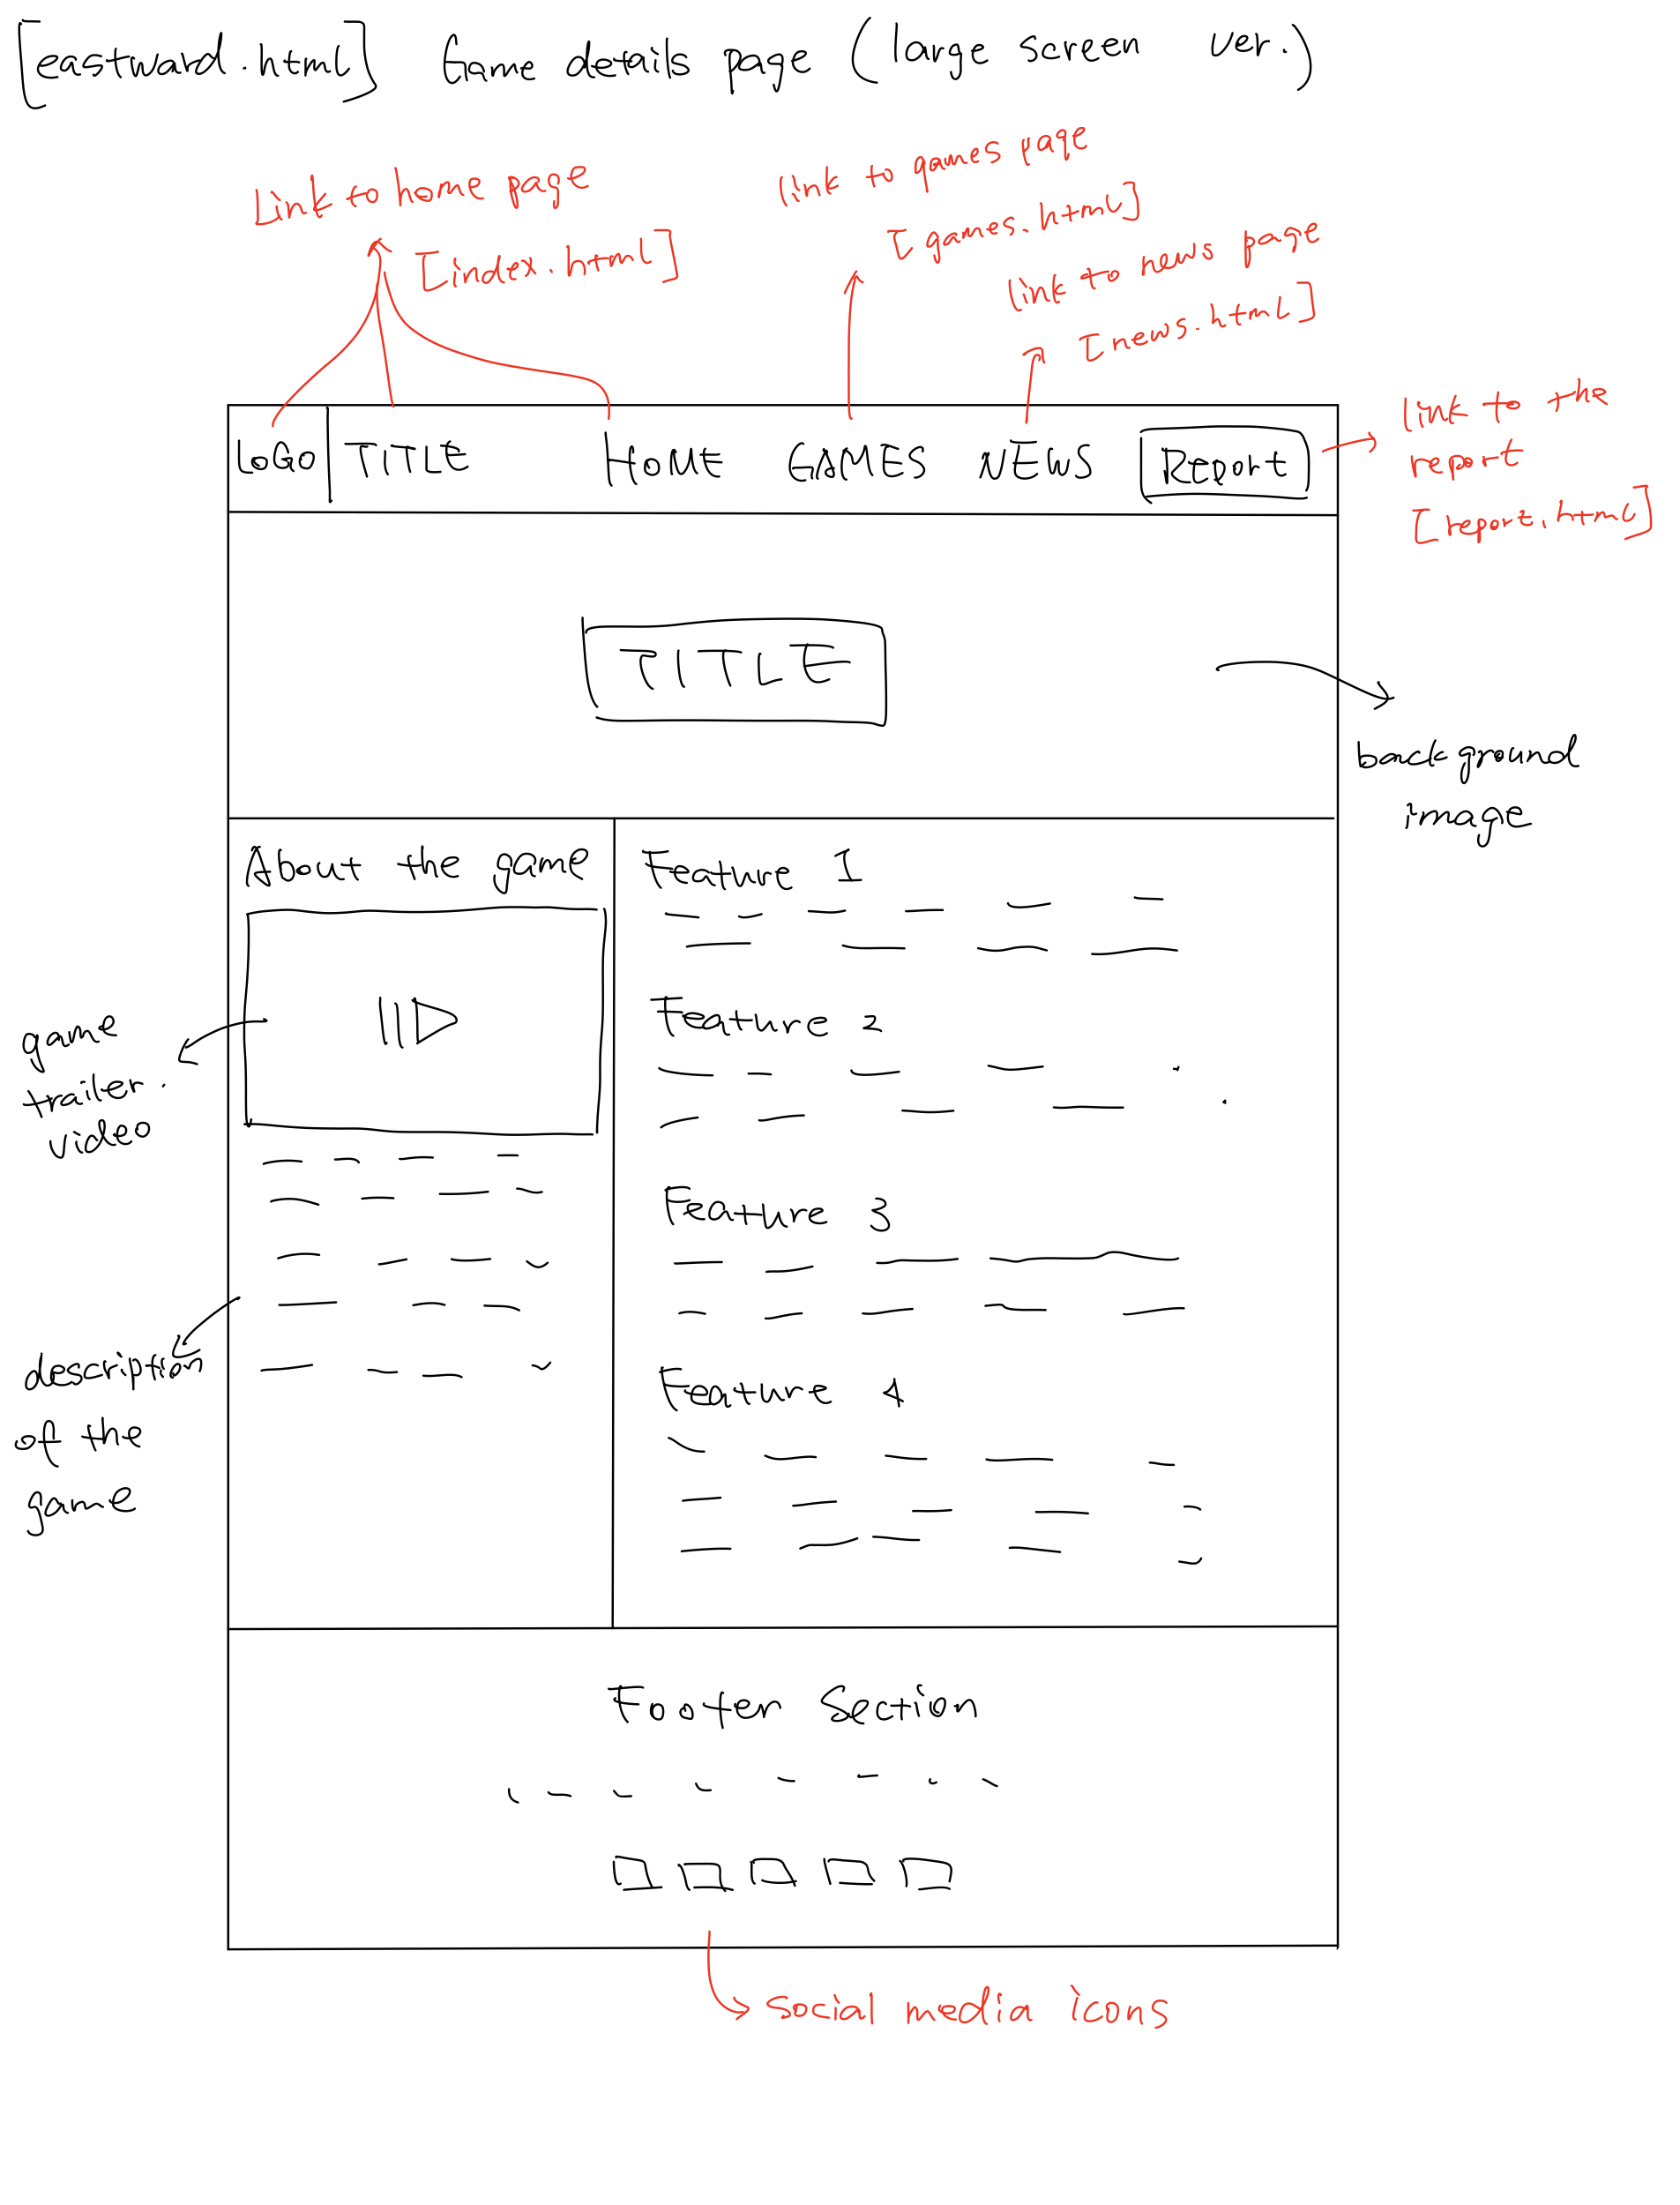 [eastward.html] Game details page (large screen ver.)
Link to home page
[index.html]
link to games page
[games.html]
link to news page
[news.html]
link to the
report
[report.html]
LOGO TITLE HOME GAMES NEWS Report
TITLE
background
image
About the game
game
trailer.
video
description
of the
game
Feature 1
Feature 2
Feature 3
Feature 4
Footer Section
social media icons